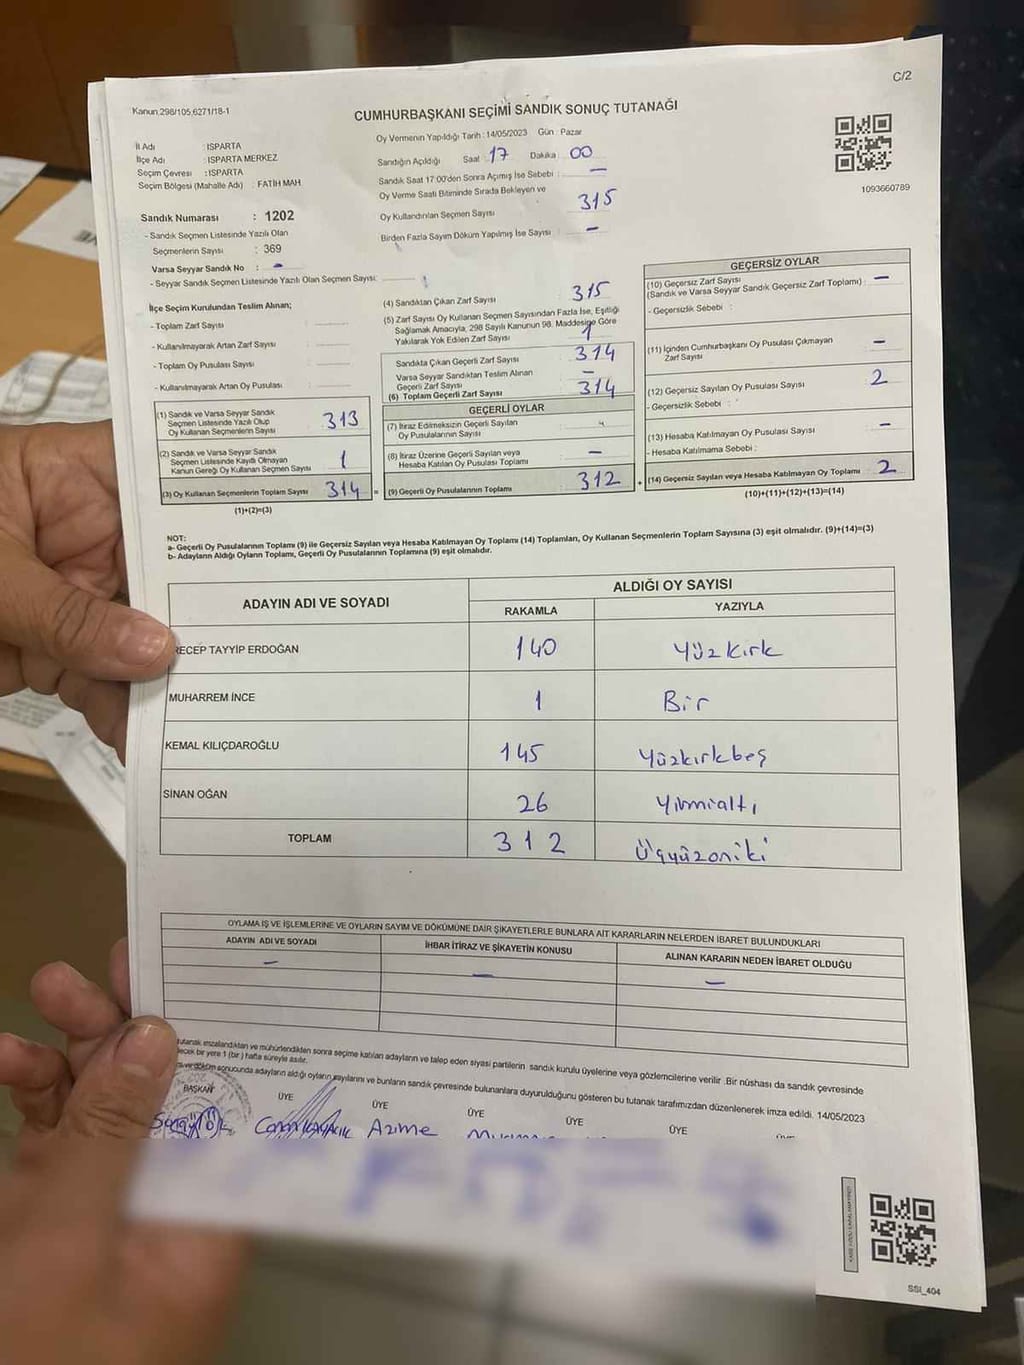 C/2
Kanun.298/105,6271/18-1
CUMHURBAŞKANI SEÇİMİ SANDIK SONUÇ TUTANAĞI
1093660789
İl Adı : ISPARTA
İlçe Adı : ISPARTA MERKEZ
Seçim Çevresi : ISPARTA
Seçim Bölgesi (Mahalle Adı) : FATİH MAH
Oy Vermenin Yapıldığı Tarih : 14/05/2023 Gün : Pazar
Sandığın Açıldığı Saat 17 Dakika 00
Sandık Saat 17:00'den Sonra Açımış İse Sebebi : —
Oy Verme Saati Bitiminde Sırada Bekleyen ve
Oy Kullandırılan Seçmen Sayısı 315
Birden Fazla Sayım Döküm Yapılmış İse Sayısı : —
Sandık Numarası : 1202
- Sandık Seçmen Listesinde Yazılı Olan
Seçmenlerin Sayısı : 369
Varsa Seyyar Sandık No : -
- Seyyar Sandık Seçmen Listesinde Yazılı Olan Seçmen Sayısı:
İlçe Seçim Kurulundan Teslim Alınan;
- Toplam Zarf Sayısı :
- Kullanılmayarak Artan Zarf Sayısı :
- Toplam Oy Pusulası Sayısı :
- Kullanılmayarak Artan Oy Pusulası :
(1) Sandık ve Varsa Seyyar Sandık
Seçmen Listesinde Yazılı Olup
Oy Kullanan Seçmenlerin Sayısı : 313
(2) Sandık ve Varsa Seyyar Sandık
Seçmen Listesinde Kayıtlı Olmayan
Kanun Gereği Oy Kullanan Seçmen Sayısı : 1
(3) Oy Kullanan Seçmenlerin Toplam Sayısı : 314 =
(1)+(2)=(3)
(4) Sandıktan Çıkan Zarf Sayısı : 315
(5) Zarf Sayısı Oy Kullanan Seçmen Sayısından Fazla İse, Eşitliği
Sağlamak Amacıyla, 298 Sayılı Kanunun 98. Maddesine Göre
Yakılarak Yok Edilen Zarf Sayısı : 1
Sandıkta Çıkan Geçerli Zarf Sayısı : 314
Varsa Seyyar Sandıktan Teslim Alınan
Geçerli Zarf Sayısı : —
(6) Toplam Geçerli Zarf Sayısı : 314
GEÇERLİ OYLAR
(7) İtiraz Edilmeksizin Geçerli Sayılan
Oy Pusulalarının Sayısı :
(8) İtiraz Üzerine Geçerli Sayılan veya
Hesaba Katılan Oy Pusulası Toplamı : —
(9) Geçerli Oy Pusulalarının Toplamı : 312 +
GEÇERSİZ OYLAR
(10) Geçersiz Zarf Sayısı
(Sandık ve Varsa Seyyar Sandık Geçersiz Zarf Toplamı) : —
- Geçersizlik Sebebi :
(11) İçinden Cumhurbaşkanı Oy Pusulası Çıkmayan
Zarf Sayısı : —
(12) Geçersiz Sayılan Oy Pusulası Sayısı : 2
- Geçersizlik Sebebi :
(13) Hesaba Katılmayan Oy Pusulası Sayısı : —
- Hesaba Katılmama Sebebi :
(14) Geçersiz Sayılan veya Hesaba Katılmayan Oy Toplamı : 2
(10)+(11)+(12)+(13)=(14)
NOT:
a- Geçerli Oy Pusulalarının Toplamı (9) ile Geçersiz Sayılan veya Hesaba Katılmayan Oy Toplamı (14) Toplamları, Oy Kullanan Seçmenlerin Toplam Sayısına (3) eşit olmalıdır. (9)+(14)=(3)
b- Adayların Aldığı Oyların Toplamı, Geçerli Oy Pusulalarının Toplamına (9) eşit olmalıdır.
ADAYIN ADI VE SOYADI
ALDIĞI OY SAYISI
RAKAMLA YAZIYLA
RECEP TAYYİP ERDOĞAN 140 Yüzkırk
MUHARREM İNCE 1 Bir
KEMAL KILIÇDAROĞLU 145 Yüzkırkbeş
SİNAN OĞAN 26 Yirmialtı
TOPLAM 312 Üçyüzoniki
OYLAMA İŞ VE İŞLEMLERİNE VE OYLARIN SAYIM VE DÖKÜMÜNE DAİR ŞİKAYETLERLE BUNLARA AİT KARARLARIN NELERDEN İBARET BULUNDUKLARI
ADAYIN ADI VE SOYADI İHBAR İTİRAZ VE ŞİKAYETİN KONUSU ALINAN KARARIN NEDEN İBARET OLDUĞU
— — —
tutanak imzalandıktan ve mühürlendikten sonra seçime katılan adayların ve talep eden siyasi partilerin sandık kurulu üyelerine veya gözlemcilerine verilir .Bir nüshası da sandık çevresinde
bir yere 1 (bir) hafta süreyle asılır.
döküm sonucunda adayların aldığı oyların sayılarını ve bunların sandık çevresinde bulunanlara duyurulduğunu gösteren bu tutanak tarafımızdan düzenlenerek imza edildi. 14/05/2023
BAŞKAN ÜYE ÜYE ÜYE ÜYE ÜYE
Azime
SSI_404